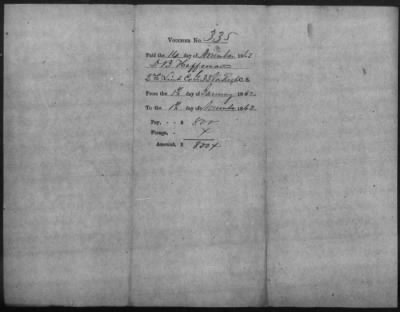 Voucher No. 335
Paid the 14 day of November 1862
D B Heffman
2nd Lieut Co
From the 1st day of January 1862
To the 1st day of November 1862
Pay, - - $ 800
Forage, -
Amount, $ 800